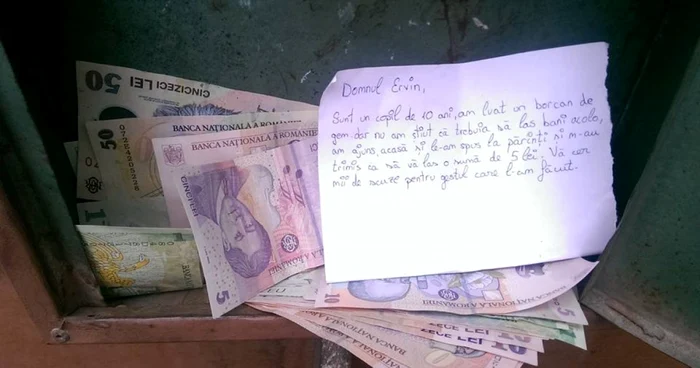 Domnul Ervin,
Sunt un copil de 10 ani, am luat un borcan de
gem dar nu am știut că trebuia să las bani acolo,
am ajuns acasă și le-am spus la părinți și m-au
trimis ca să vă las o sumă de 5 lei. Vă cer
mii de scuze pentru gestul care l-am făcut.
50 CINCIZECI LEI
50
BANCA NAȚIONALĂ A ROMÂNIEI
BANCA NAȚIONALĂ A ROMÂNIEI
5
A ROMÂNIEI
10
BANCA NAȚIONALĂ A ROMÂNIEI
5
ZECE LEI 10
BANCA NAȚIONALĂ